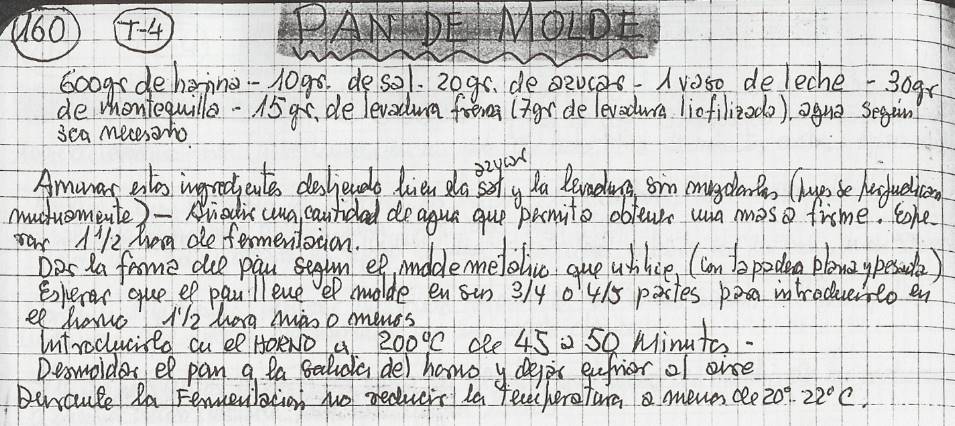 160 T-4 PAN DE MOLDE
600gr de harina - 10gr. de sal. 20gr. de azucar - 1 vaso de leche - 30gr
de mantequilla - 15 gr. de levadura fresca (7gr de levadura liofilizada), agua según
sea necesario.
azucar
Amasar estos ingredientes desliendo bien la sal y la levadura sin mezclarlas (pues se perjudican
mutuamente) - Añadir una cantidad de agua que permita obtener una masa firme. Espe-
rar 1 1/2 hora de fermentacion.
Dar la forma del pan segun el molde metalico que utilice, (con tapadera plana y pesada)
Esperar que el pan llene el molde en sus 3/4 o 4/5 partes para introducirlo en
el horno 1 1/2 hora mas o menos
Introducirlo en el HORNO a 200°C de 45 a 50 Minutos -
Desmoldar el pan a la salida del horno y dejar enfriar al aire
Durante la Fermentacion no reducir la temperatura a menos de 20°-22°C.